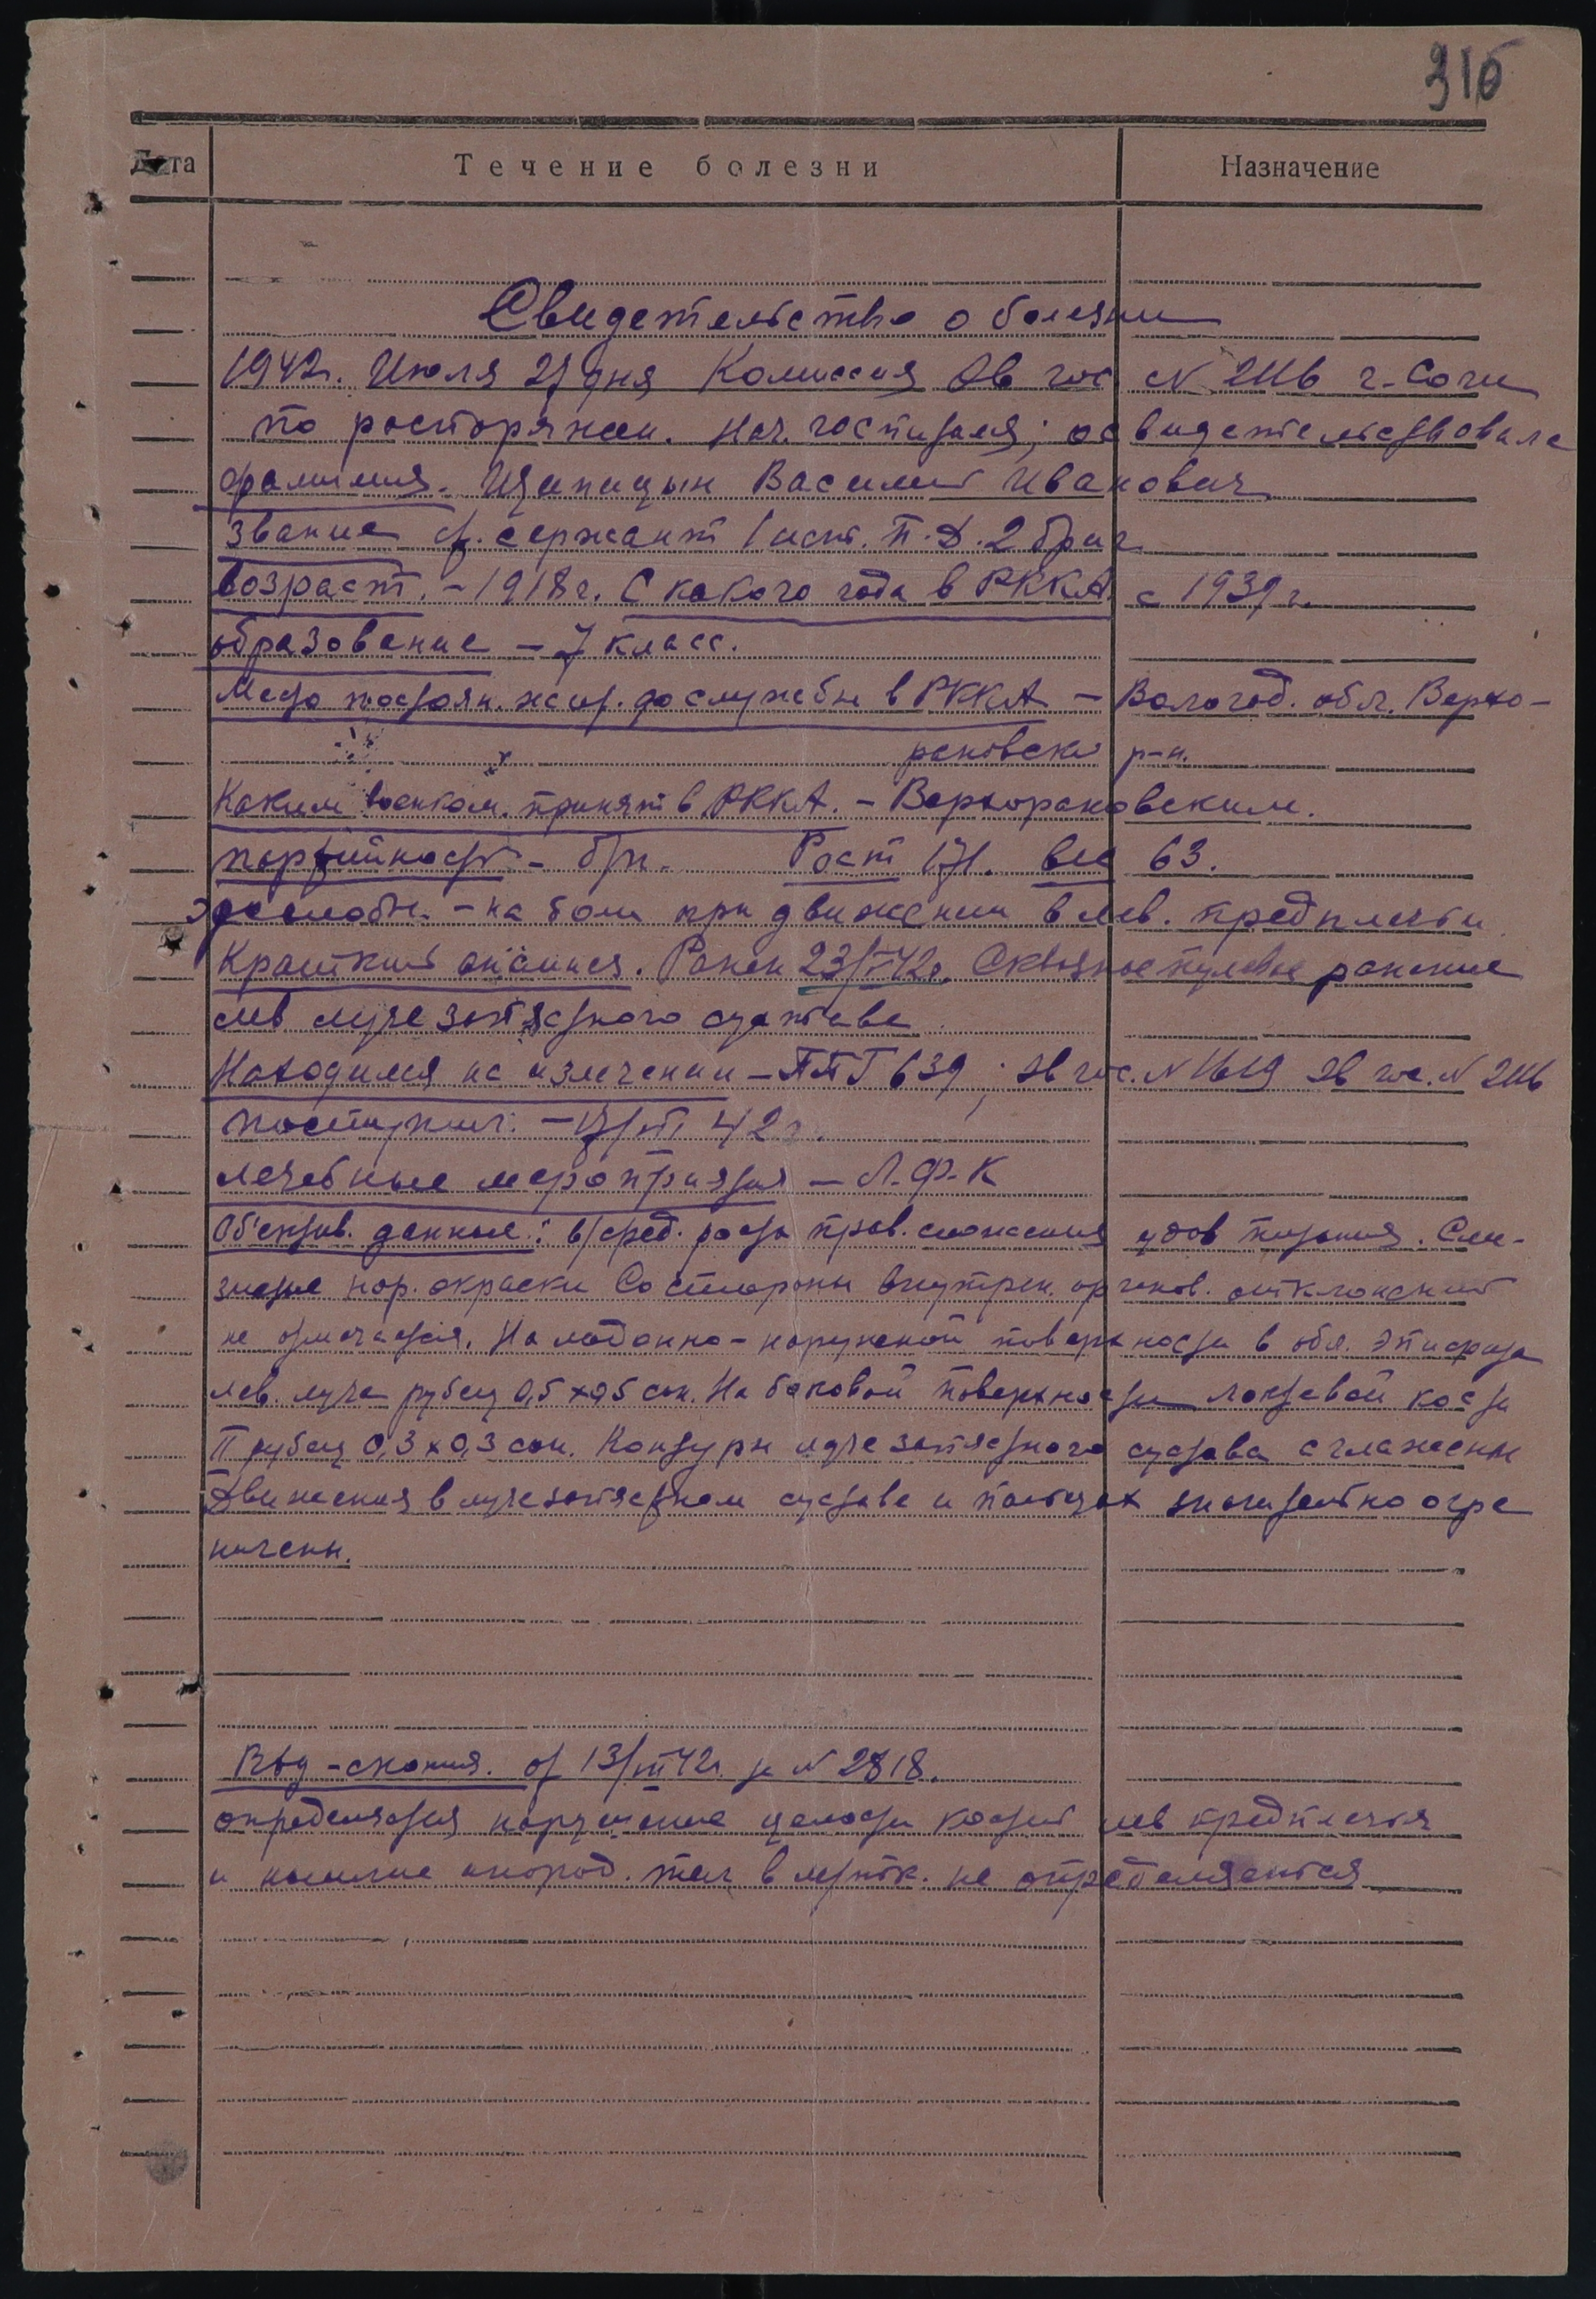 316
Дата Течение болезни Назначение
Свидетельство о болезни
1942г. Июля 27 дня Комиссия Эв гос N 2116 г-Сочи
по распоряжен. нач. госпиталя; освидетельствовала
фамилия. Василий Иванович
звание ст. сержант 1 П.Д. 2 бриг
возраст. - 1918 г. С какого года в РККА с 1939 г.
образование - 7 класс.
Место постоян. жит. до службы в РККА - Вологод. обл. Верхо-
р-н.
Каким военком. принят в РККА. -
партийность - б/п. Рост 171. вес 63.
жалобы. - на боли при движении в лев. предплечьи
Краткий анамнез. Ранен 23/ 42г. Сквозное пулевое ранение
лев лучезапястного сустава.
Находился на излечении - ППГ 639; эв гос. N 1619 эв гос. N 2116
поступил: - 17/ 42 г.
лечебные мероприятия - Л.Ф.К
Объектив. данные: в/сред. роста прав. сложения удов питания. Сли-
зистые нор. окраски Со стороны внутрен. органов. отклонений
не отмечается. На ладонно-наружной поверхности в обл. эпифиза
лев. луча рубец 0,5 х 0,5 см. На боковой поверхности локтевой кости
рубец 0,3 х 0,3 см. Контуры лучезапястного сустава сглажены
Движения в лучезапястном суставе и пальцах значительно огра
ничены.
от 13/ 42г. за N 2818.
определяется нарушение целости костей лев предплечья
и инород. тел в м/тк. не определяется